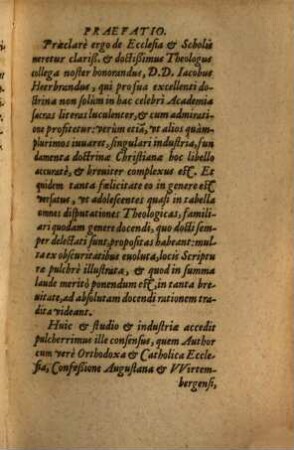 PRAEFATIO.
Præclarè ergo de Ecclesia & Scholis
meretur clariſ. & doctiſſimus Theologus
collega noster honorandus, D.D. Iacobus
Heerbrandus, qui pro sua excellenti do-
ctrina non solùm in hac celebri Academia
sacras literas luculenter, & cum admirati-
one profitetur: verùm etiã, vt alios quàm-
plurimos iuuaret, singulari industria, fun
damenta doctrinæ Christianæ hoc libello
accuratè, & breuiter complexus est. Et
quidem tanta fælicitate eo in genere est
versatus, vt adolescentes quasi in tabella
omnes disputationes Theologicas, famili-
ari quodam genere docendi, quo docti sem
per delectati sunt, propositas habeant: mul
ta ex obscuritatibus euoluta, locis Scriptu
ræ pulchrè illustrata, & quod in summa
laude meritò ponendum est, in tanta bre-
uitate, ad absolutam docendi rationem tra
dita videant.
Huic & studio & industriæ accedit
pulcherrimus ille consensus, quem Author
cum verè Orthodoxa & Catholica Eccle
sia, Confeßione Augustana & VVirtem-
bergensi,